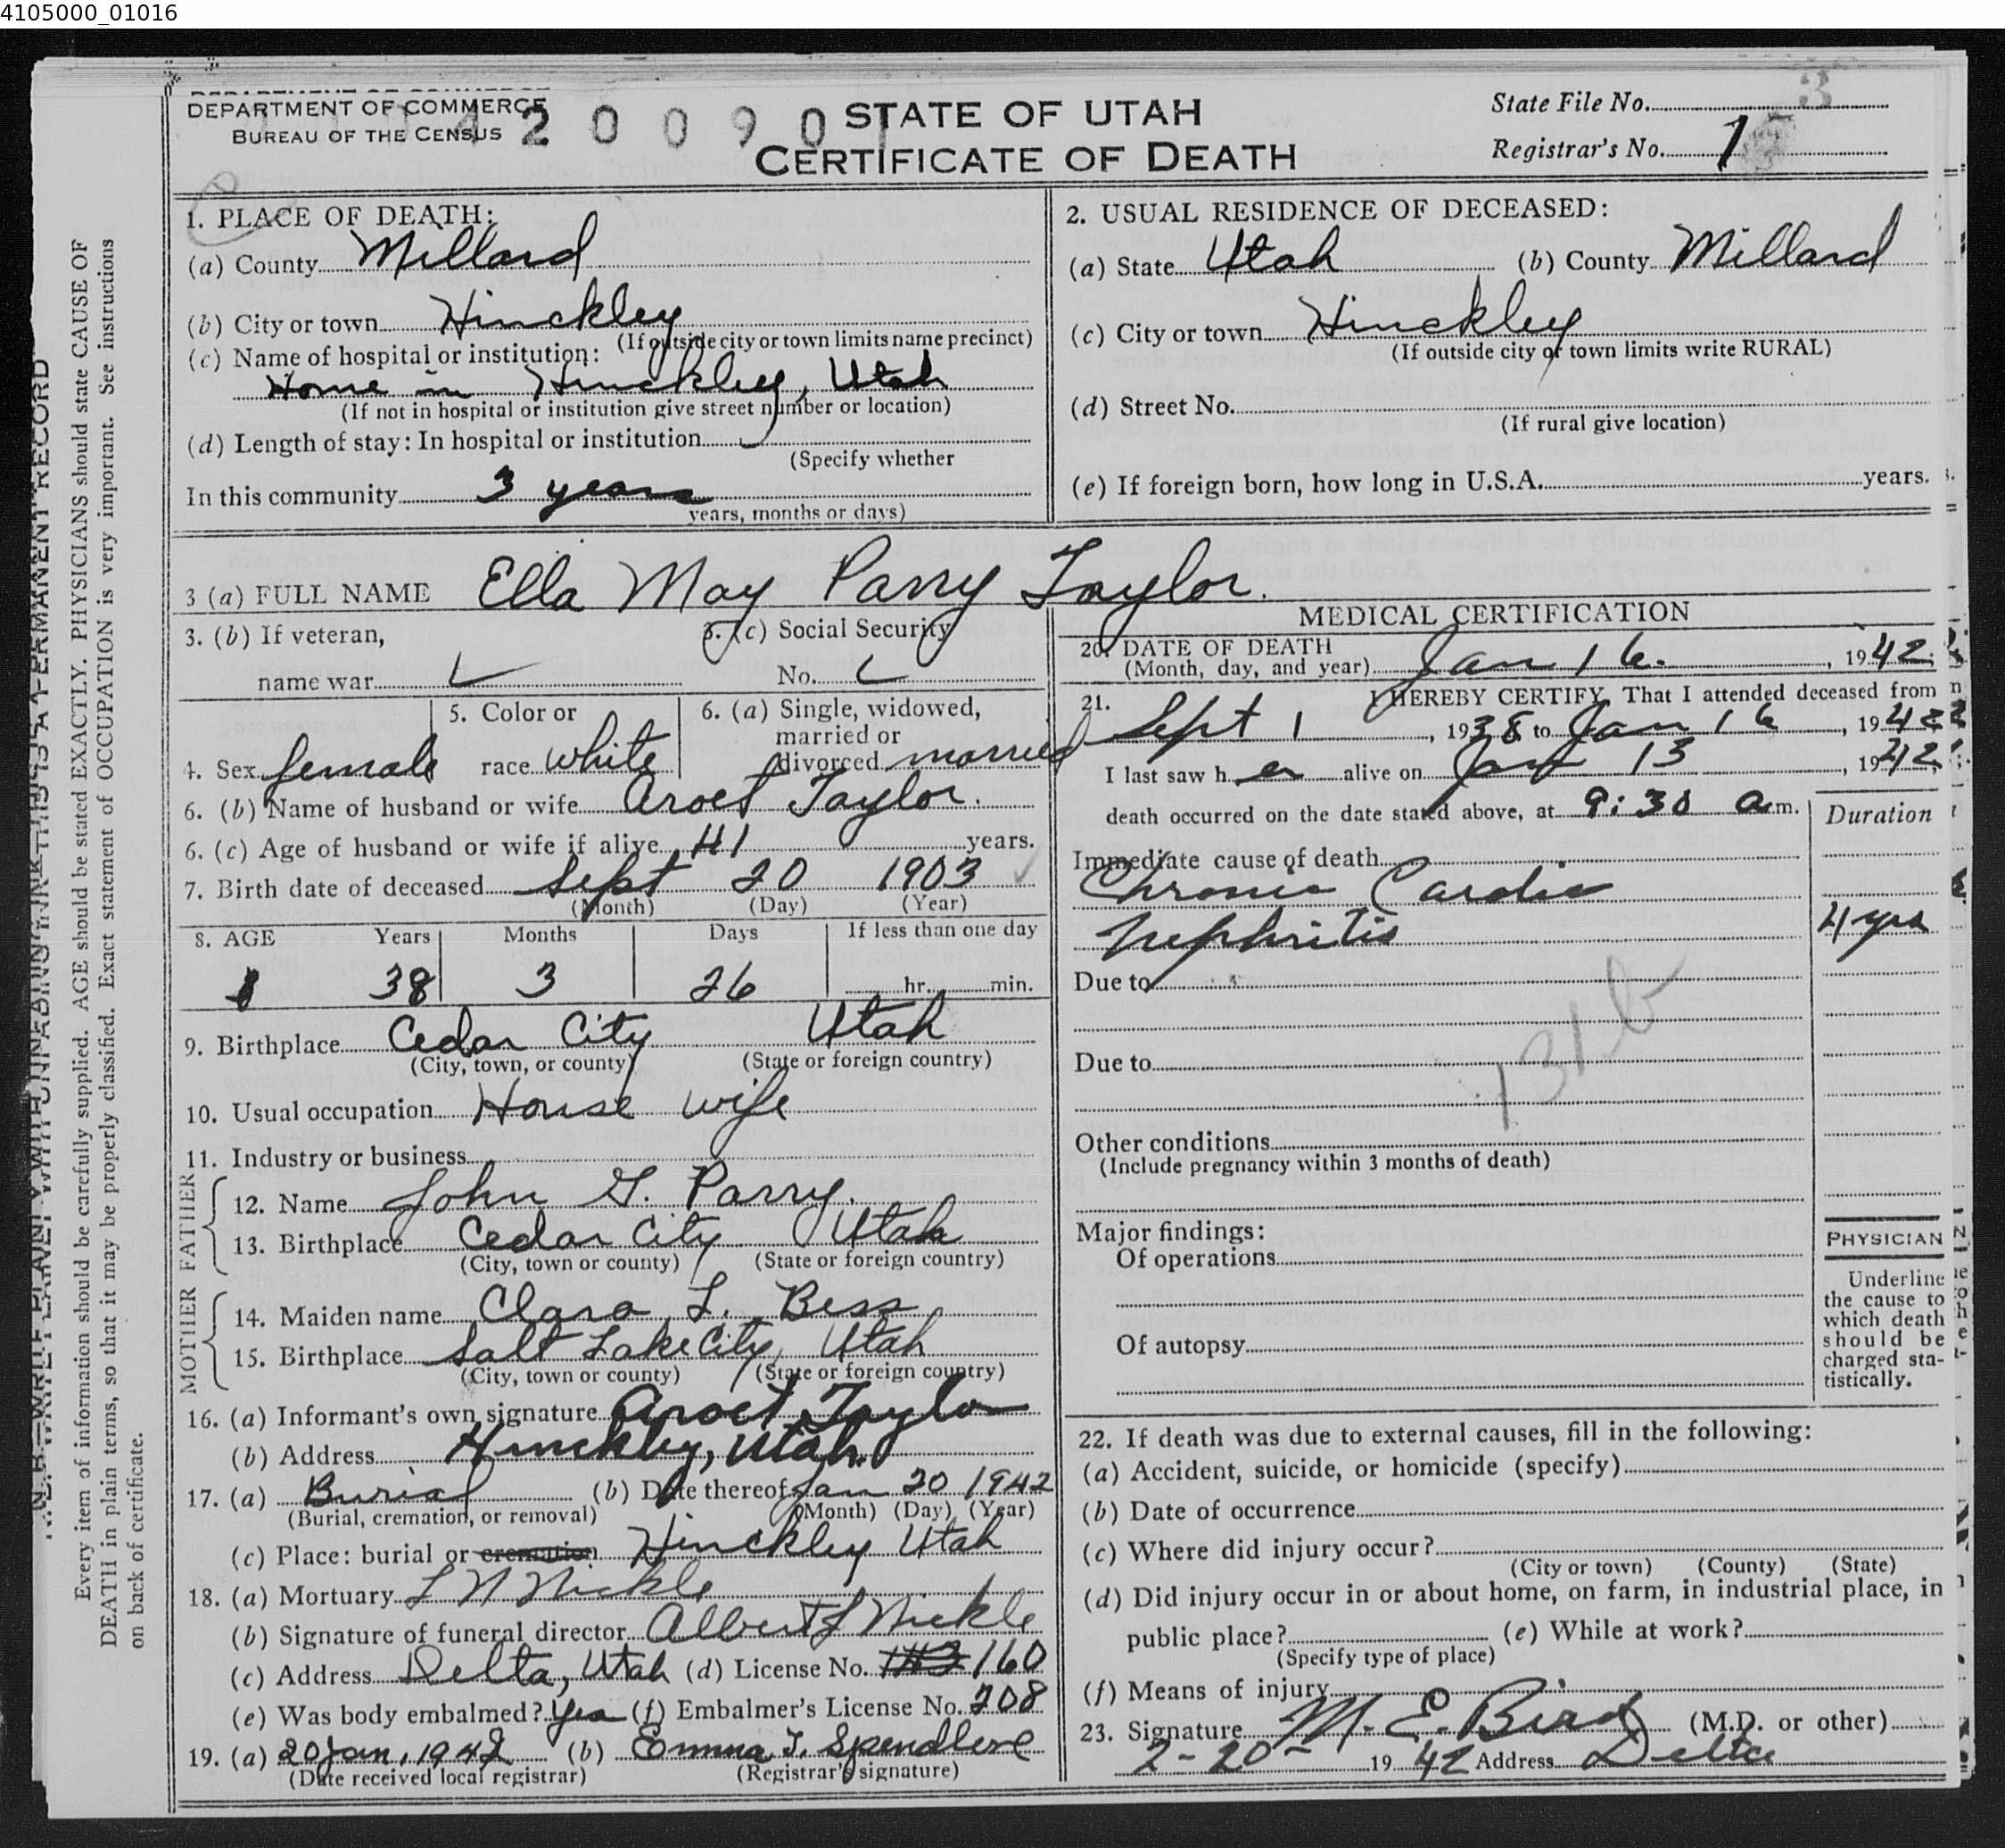 4105000_01016
DEPARTMENT OF COMMERCE
BUREAU OF THE CENSUS
4 2 0 0 9 0
STATE OF UTAH
CERTIFICATE OF DEATH
State File No. 3
Registrar's No. 1
1. PLACE OF DEATH:
(a) County Millard
(b) City or town Hinckley
(If outside city or town limits name precinct)
(c) Name of hospital or institution:
Home in Hinckley, Utah
(If not in hospital or institution give street number or location)
(d) Length of stay: In hospital or institution
(Specify whether
In this community 3 years
years, months or days)
2. USUAL RESIDENCE OF DECEASED:
(a) State Utah (b) County Millard
(c) City or town Hinckley
(If outside city or town limits write RURAL)
(d) Street No.
(If rural give location)
(e) If foreign born, how long in U.S.A. years.
3 (a) FULL NAME Ella May Parry Taylor.
3. (b) If veteran,
name war
3. (c) Social Security
No.
4. Sex female
5. Color or
race white
6. (a) Single, widowed,
married or
divorced married
6. (b) Name of husband or wife Aroet Taylor.
6. (c) Age of husband or wife if alive 41 years.
7. Birth date of deceased Sept 20 1903
(Month) (Day) (Year)
8. AGE Years Months Days If less than one day
38 3 26 hr. min.
9. Birthplace Cedar City Utah
(City, town, or county) (State or foreign country)
10. Usual occupation House wife
11. Industry or business
FATHER
12. Name John G. Parry.
13. Birthplace Cedar City Utah
(City, town or county) (State or foreign country)
MOTHER
14. Maiden name Clara L. Bess
15. Birthplace Salt Lake City, Utah
(City, town or county) (State or foreign country)
16. (a) Informant's own signature Aroet Taylor
(b) Address Hinckley, Utah.
17. (a) Burial (b) Date thereof Jan 20 1942
(Burial, cremation, or removal) (Month) (Day) (Year)
(c) Place: burial or cremation Hinckley Utah
18. (a) Mortuary L N Nickle
(b) Signature of funeral director Albert L Nickle
(c) Address Delta, Utah (d) License No. 160
(e) Was body embalmed? Yes (f) Embalmer's License No. 208
19. (a) 20 Jan, 1942 (b) Emma T. Spendlove
(Date received local registrar) (Registrar's signature)
MEDICAL CERTIFICATION
20. DATE OF DEATH
(Month, day, and year) Jan 16. , 1942
21. I HEREBY CERTIFY, That I attended deceased from
Sept 1 , 1938 to Jan 16 , 1942
I last saw her alive on Jan 13 , 1942
death occurred on the date stated above, at 9:30 a.m.
Duration
Immediate cause of death
Chronic Cardio
Nephritis 4 yrs
Due to
131b
Due to
Other conditions
(Include pregnancy within 3 months of death)
Major findings:
Of operations
Of autopsy
PHYSICIAN
Underline
the cause to
which death
should be
charged sta-
tistically.
22. If death was due to external causes, fill in the following:
(a) Accident, suicide, or homicide (specify)
(b) Date of occurrence
(c) Where did injury occur?
(City or town) (County) (State)
(d) Did injury occur in or about home, on farm, in industrial place, in
public place? (e) While at work?
(Specify type of place)
(f) Means of injury
23. Signature M. E. Bird (M.D. or other)
2-20- 1942 Address Delta
N. B.—WRITE PLAINLY WITH UNFADING INK—THIS IS A PERMANENT RECORD
Every item of information should be carefully supplied. AGE should be stated EXACTLY. PHYSICIANS should state CAUSE OF
DEATH in plain terms, so that it may be properly classified. Exact statement of OCCUPATION is very important. See instructions
on back of certificate.